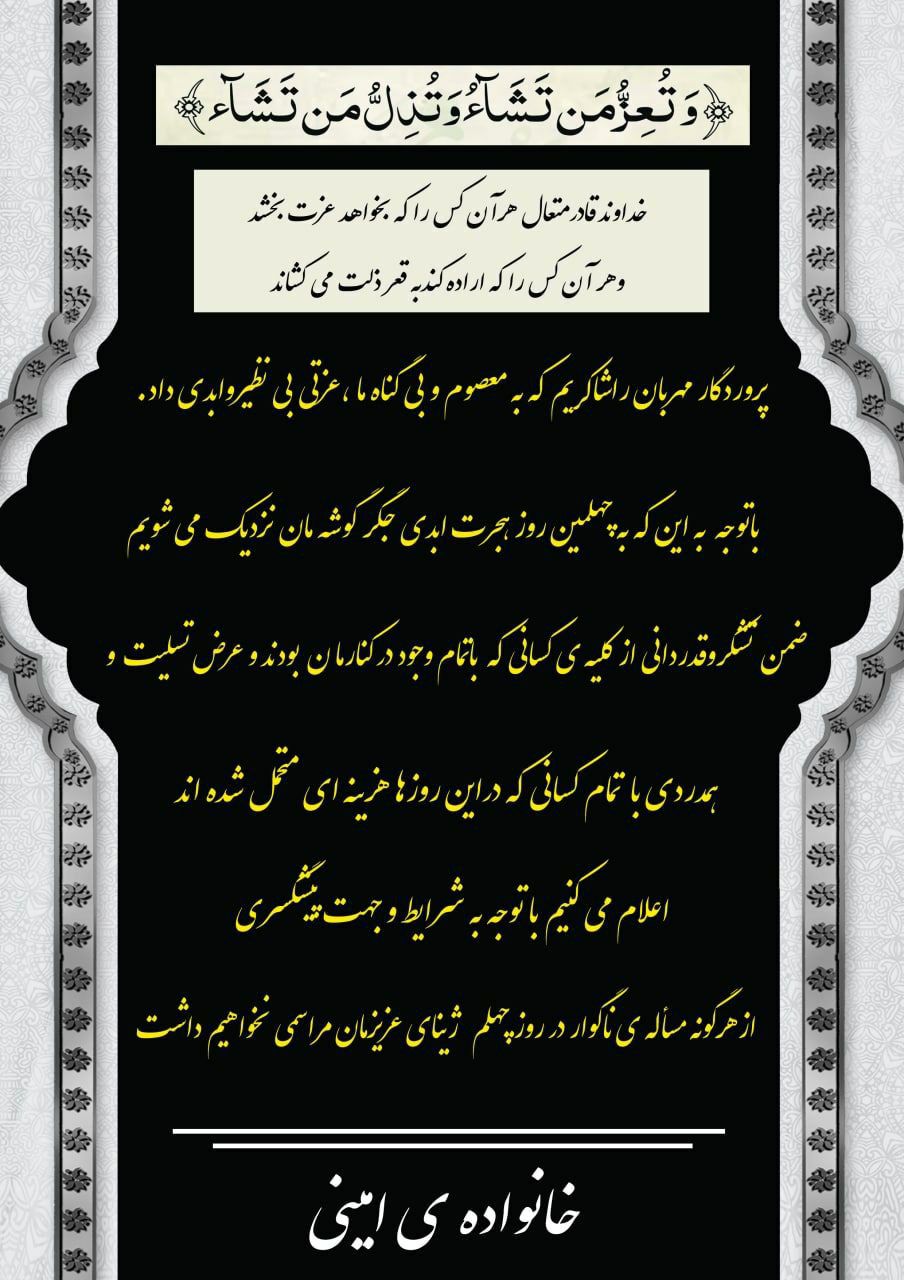 ﴿وَتُعِزُّ مَن تَشَآءُ وَتُذِلُّ مَن تَشَآء﴾
خداوند قادر متعال هر آن کس را که بخواهد عزت بخشد
و هر آن کس را که اراده کند به قعر ذلت می کشاند
پروردگار مهربان را شاکریم که به معصوم و بی گناه ما ، عزتی بی نظیر و ابدی داد.
باتوجه به این که به چهلمین روز هجرت ابدی جگر گوشه مان نزدیک می شویم
ضمن تشکر و قدردانی از کلیه ی کسانی که باتمام وجود در کنارمان بودند و عرض تسلیت و
همدردی با تمام کسانی که در این روزها هزینه ای متحمل شده اند
اعلام می کنیم با توجه به شرایط و جهت پیشگسری
از هرگونه مسأله ی ناگوار در روز چهلم ژینای عزیزمان مراسمی نخواهیم داشت
خانواده ی امینی